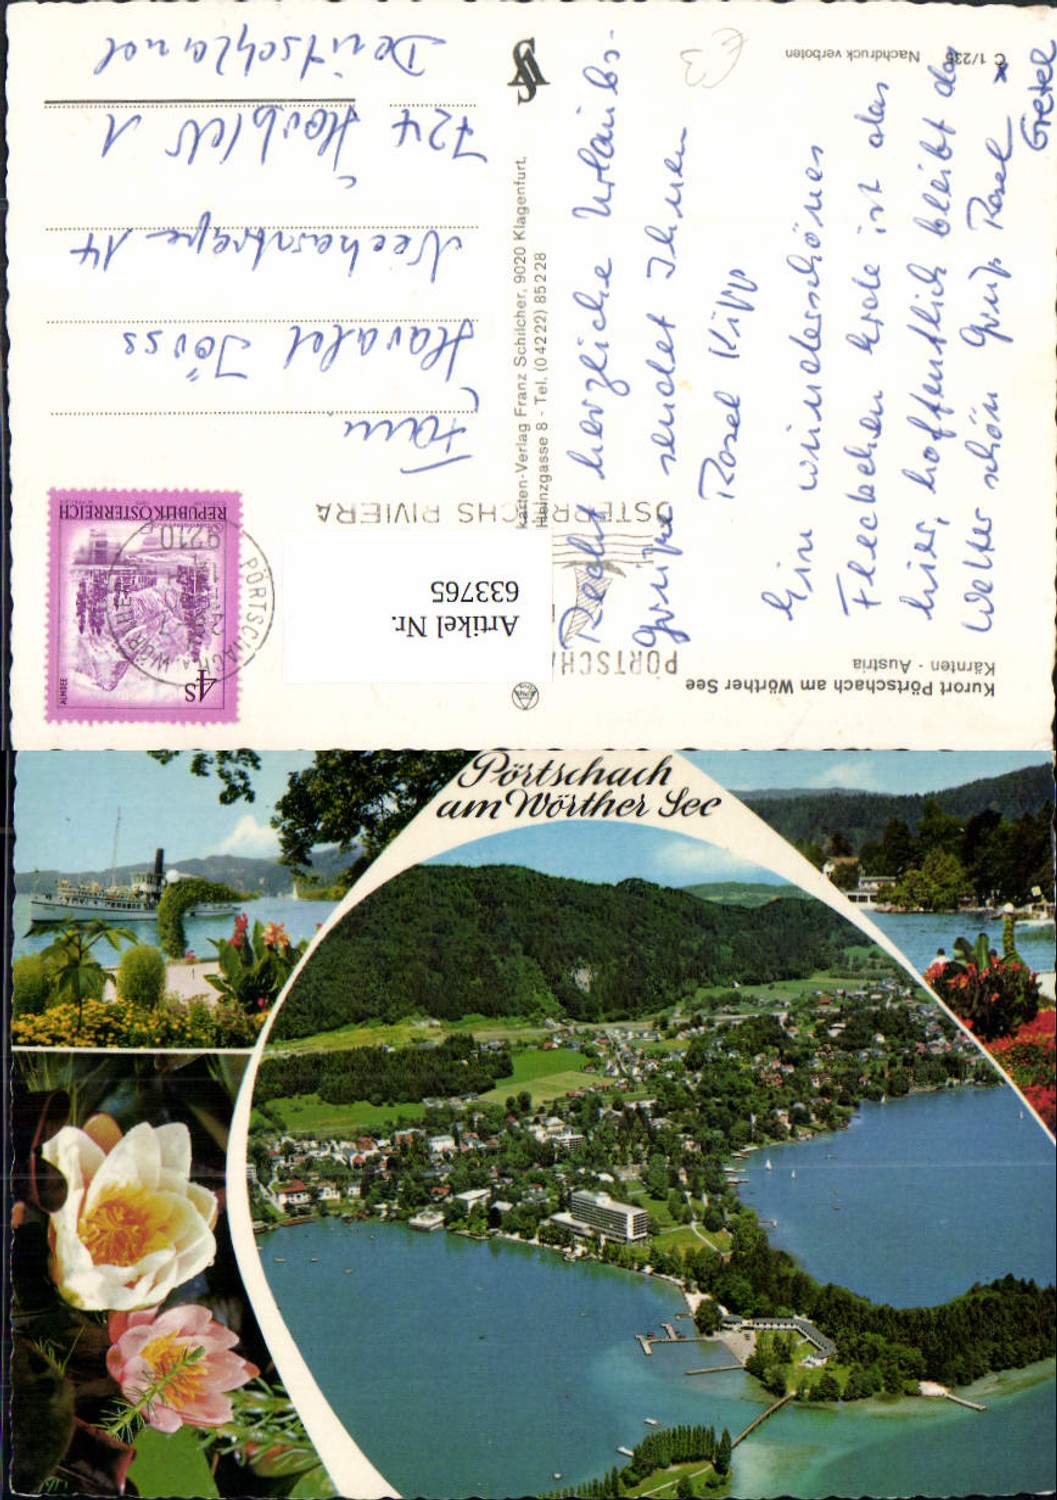 Kurort Pörtschach am Wörther See
Kärnten - Austria
Recht herzliche Urlaubs-
grüße sendet Ihnen
Rosel Kipp
Ein wunderschönes
Fleckchen Erde ist das
hier, hoffentlich bleibt das
Wetter schön Gruß Rosel
Gretel
C 1/235
Nachdruck verboten
€3
Karten-Verlag Franz Schilcher, 9020 Klagenfurt,
Heinzgasse 8 - Tel. (0 42 22) 85 2 28
Artikel Nr.
633765
PÖRTSCHA
ÖSTERREICHS RIVIERA
9210
PÖRTSCHACH A. WÖRTHER
4S
ALMSEE
REPUBLIK ÖSTERREICH
724 Horb/
Deutschland
Pörtschach
am Wörther See